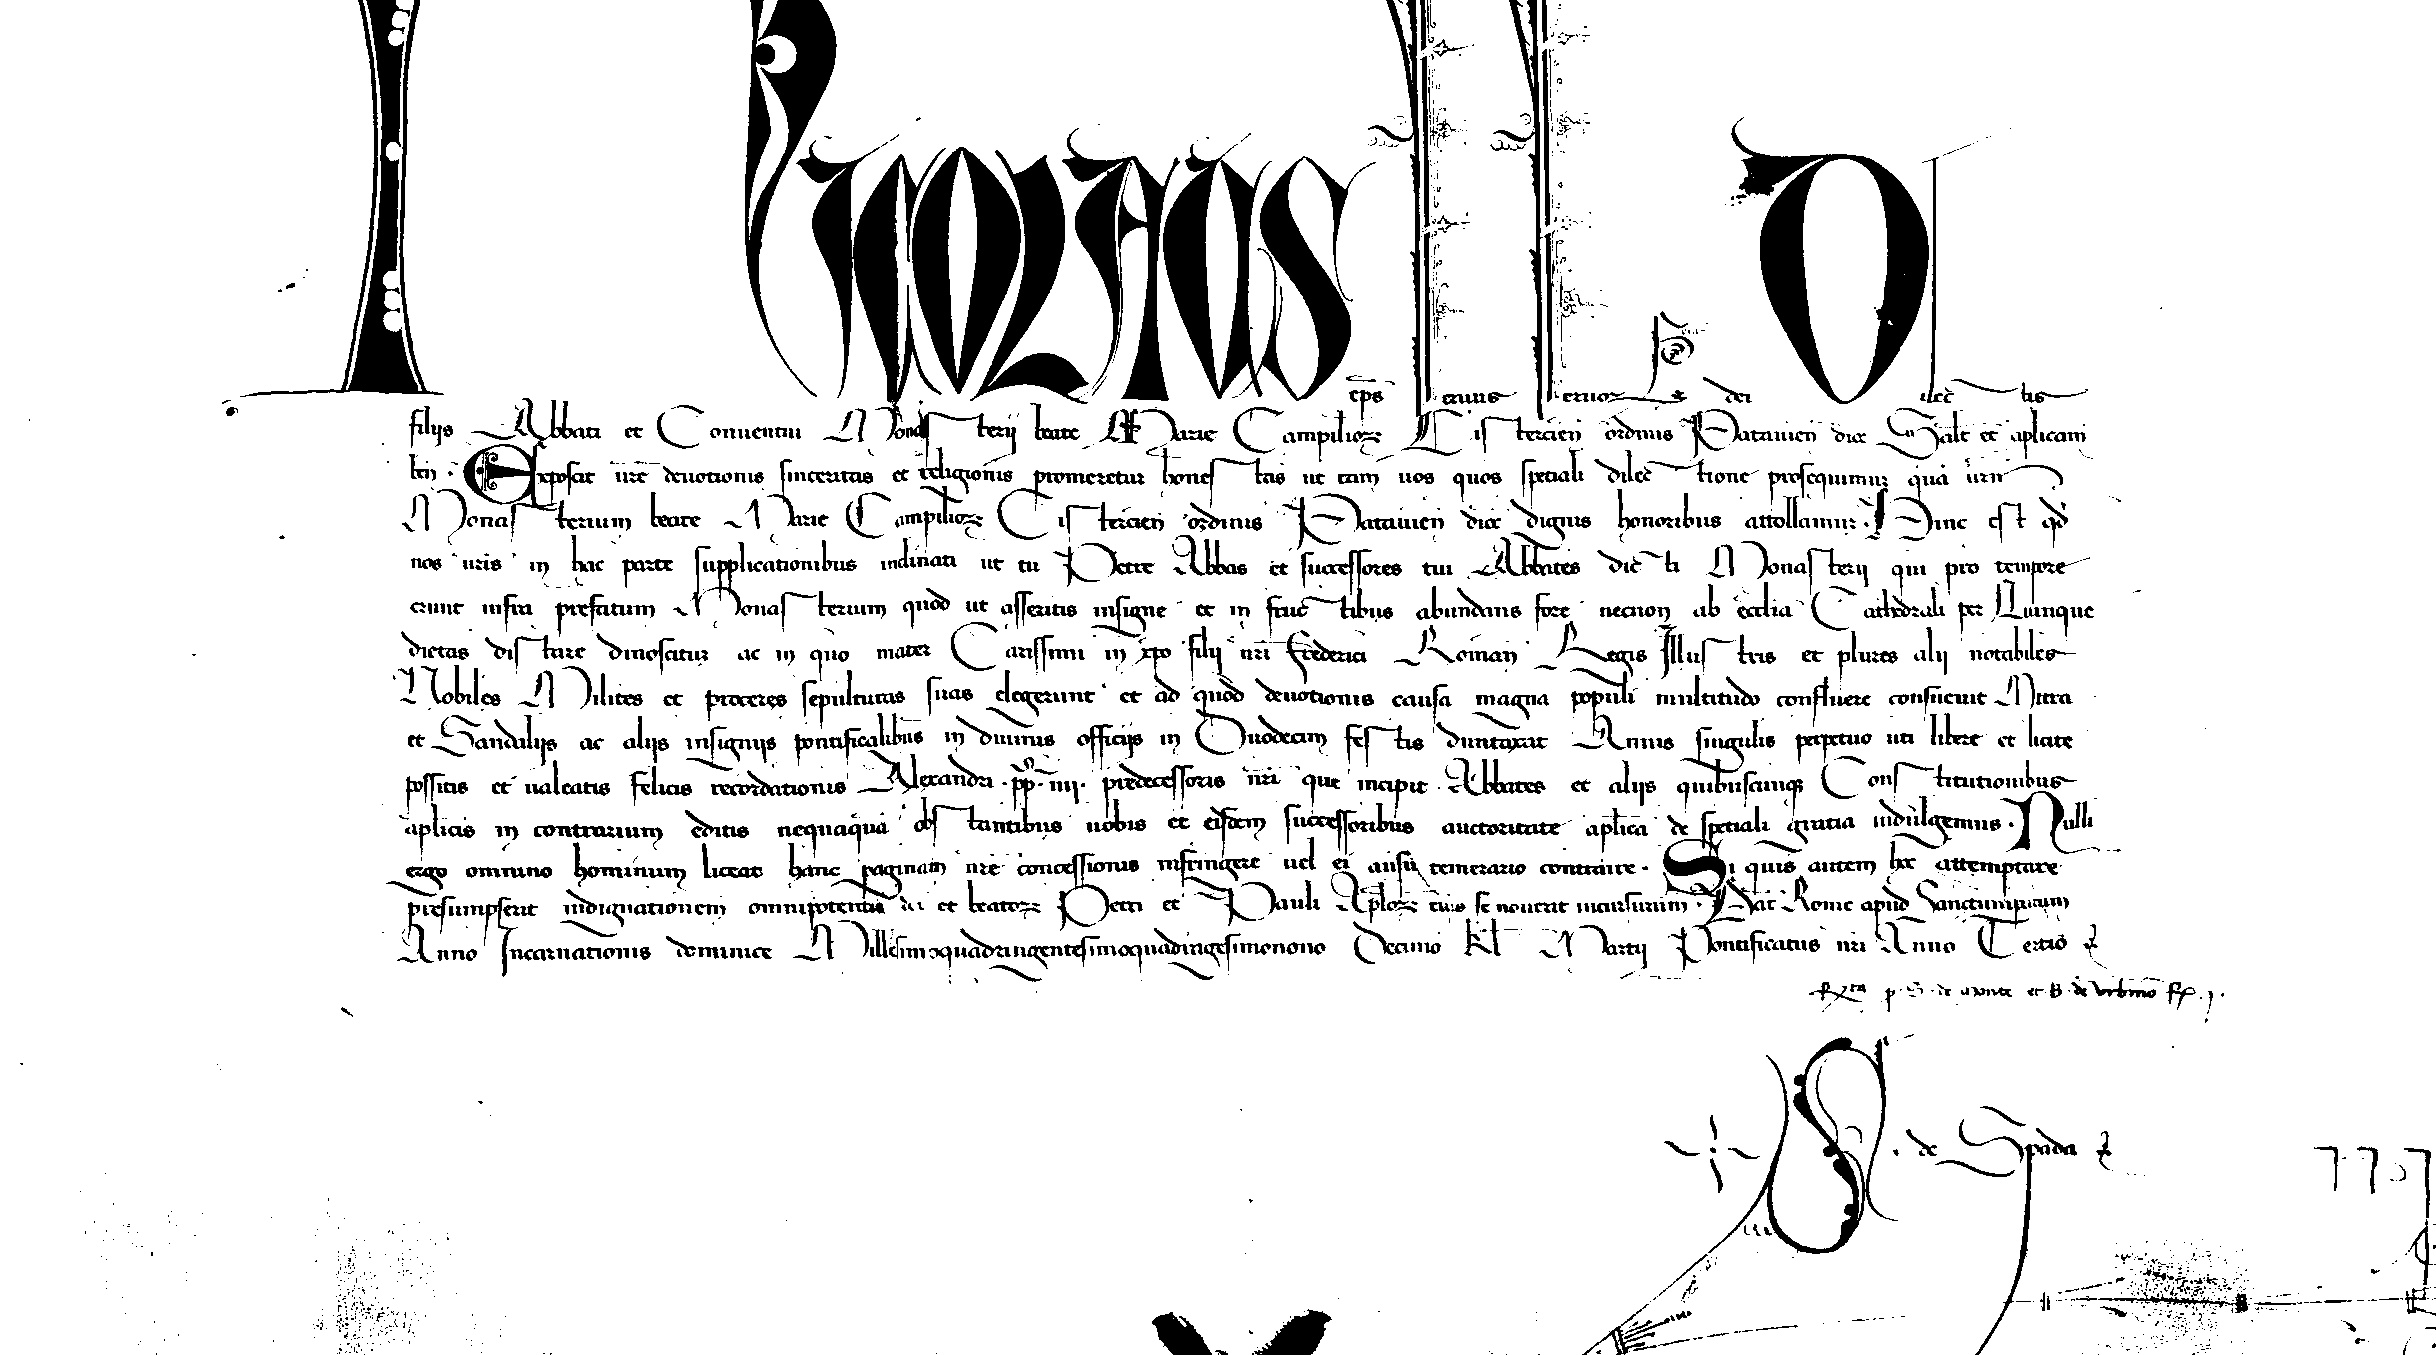 Nicolaus eps seruus seruoꝝ dei dilectis
filijs Abbati et Conuentui Monasterij beate Marie Campilioꝝ Cistercien̄ ordinis Patauien̄ dioc̄ Salt̄ et aplicam
ben̄. Exposcit ur̄e deuotionis sinceritas et religionis promeretur honestas ut tam uos quos speciali dilectione prosequimur quā ur̄m
Monasterium beate Marie Campilioꝝ Cistercien̄ ordinis Patauien̄ dioc̄ dignis honoribus attollamus. Hinc est qđ
nos ur̄is in hac parte supplicationibus inclinati ut tu Petre Abbas et successores tui Abbates dicti Monasterij qui pro tempore
erunt infra prefatum Monasterium quod ut asseritis insigne et in fructibus abundans fore necnon ab eccl̄ia Cathedrali per Quinque
dietas distare dinoscitur ac in quo mater Carissimi in xp̄o filij nr̄i Frederici Roman̄ Regis Illustris et plures alij notabiles
Nobiles Milites et proceres sepulturas suas elegerunt et ad quod deuotionis causa magna populi multitudo confluere consueuit Mitra
et Sandalijs ac alijs insignijs pontificalibus in diuinis officijs in Duodecim festis duntaxat Annis singulis perpetuo uti libere et licite
possitis et ualeatis felicis recordationis Alexandri .pp̄. iiij. predecessoris nr̄i que incipit Abbates et alijs quibuscunqꝫ Constitutionibus
aplicis in contrarium editis nequaquā obstantibus uobis et eisdem successoribus auctoritate apl̄ica de speciali gratia indulgemus. Nulli
ergo omnino hominum liceat hanc paginam nr̄e concessionis infringere uel ei ausu temerario contraire. Si quis autem hoc attemptare
presumpserit indignationem omnipotentis dei et beatoꝝ Petri et Pauli Apl̄oꝝ eius se nouerit incursurum. Dat̄ Rome apud Sanctumpetrum
Anno Incarnationis dominice Millesimoquadringentesimoquadragesimonono Decimo kl̄ Martij Pontificatus nr̄i Anno Tertio
Rta p. S. de et B. de Vrbino
. de Spada